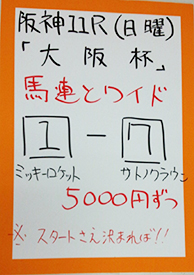 阪神11R(日曜)
「大阪杯」
馬連とワイド
1-7
ミッキーロケット サトノクラウン
5000円ずつ
※スタートさえ決まれば!!